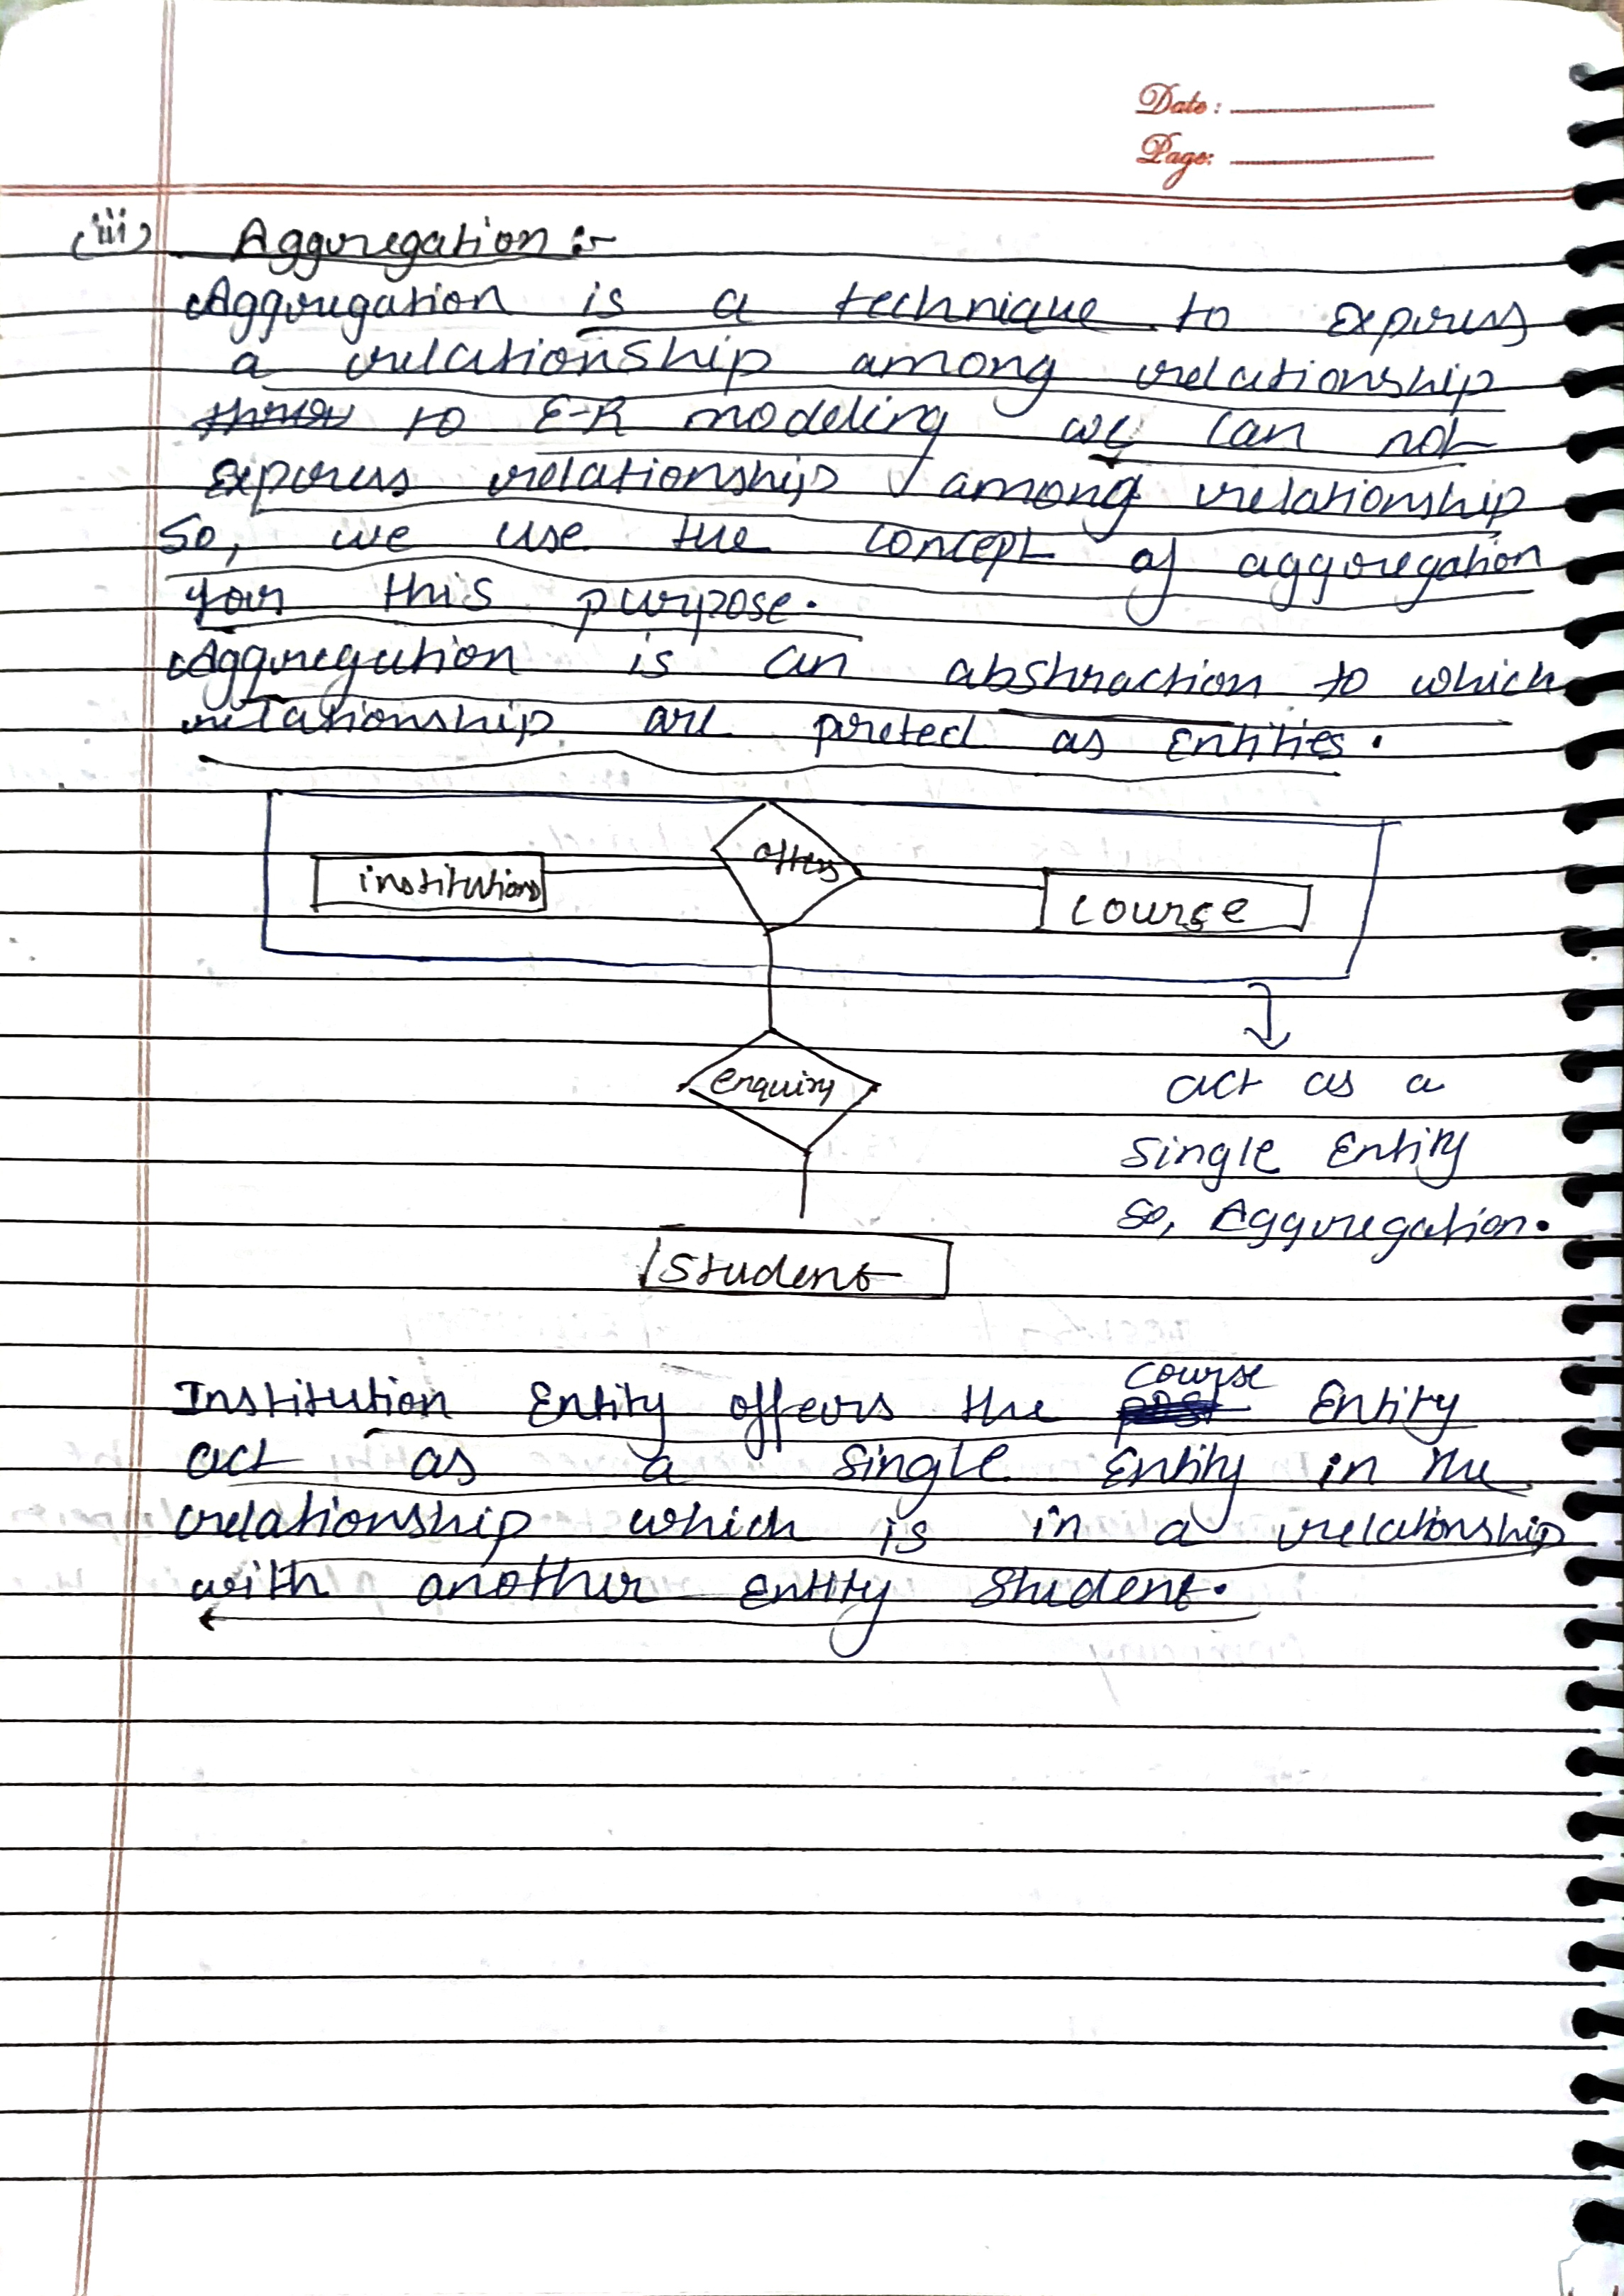 Date:
Page:
(iii) Aggregation :-
Aggregation is a technique to express
a relationship among relationship
to E-R modeling we can not
express relationship among relationship
So, we use the concept of aggregation
for this purpose.
Aggregation is an abstraction to which
relationship are preted as Entities.
institutions
offers
course
enquiry
act as a
Single Entity
So, Aggregation.
Student
course
Institution Entity offers the Entity
act as a single Entity in the
relationship which is in a relationship
with another entity Student.